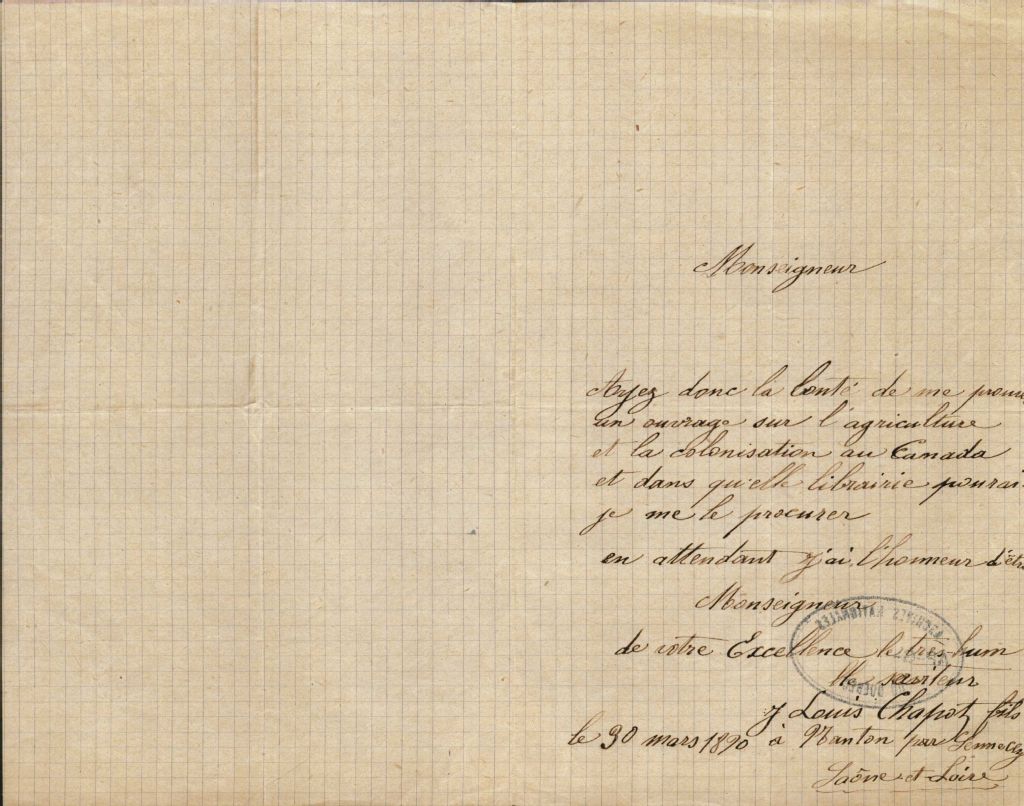 Monseigneur
Ayez donc la bonté de me
un ouvrage sur l'agriculture
et la colonisation au Canada
et dans qu'elle librairie pourai
je me le procurer
en attendant j'ai l'honneur d'être
Monseigneur
de votre Excellence le très hum
ble serviteur
J Louis Chapot fils
le 30 mars 1890 à Nanton par Sennecey
Saône et Loire
ARCHIVES NATIONALES
DU QUEBEC